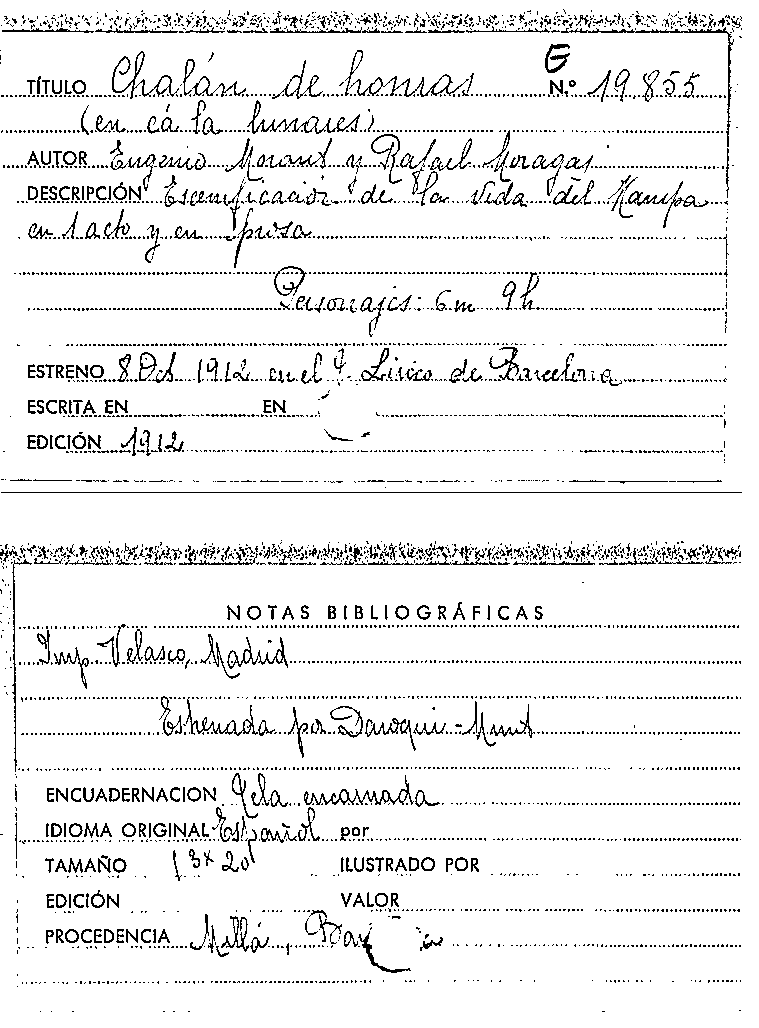 E
TÍTULO Chalán de honras N.º 19.855
(en cá la lunares)
AUTOR Eugenio Morant y Rafael Moragas
DESCRIPCIÓN Escenificación de la vida del Hampa
en 1 acto y en prosa
Personajes: 6m 9h
ESTRENO 8 Oct 1912 en el T. Lírico de Barcelona
ESCRITA EN EN
EDICIÓN 1912
NOTAS BIBLIOGRÁFICAS
Imp. Velasco, Madrid
Estrenada por Daroqui-Munt
ENCUADERNACION Tela encarnada
IDIOMA ORIGINAL Español por
TAMAÑO 13x20 ILUSTRADO POR
EDICIÓN VALOR
PROCEDENCIA Millá,